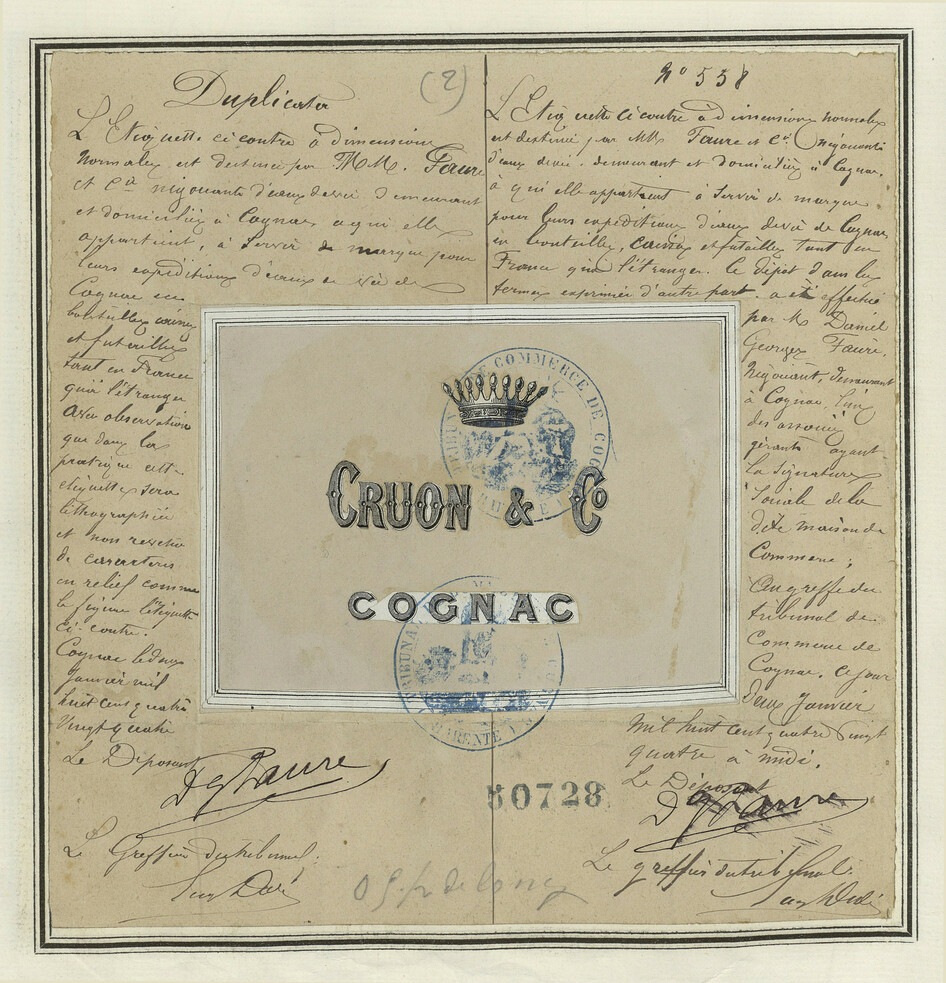 Duplicata
(2)
L'Etiquette ci contre à dimensions
normales est destinée par MM. Faure
et Cie négociants d'eaux de vie demeurant
et domiciliés à Cognac a qui elle
appartient, à servir de marque pour
leurs expéditions d'eaux de vie de
Cognac en
bouteilles caisses
et futailles
tant en France
qu'à l'étranger
avec observation
que dans la
pratique cette
etiquette sera
lithographiée
et non revetue
de caracteres
en relief comme
le figure l'etiquette
ci-contre.
Cognac le deux
Janvier mil
huit cent quatre
vingt quatre
Le Déposant
D G Faure
Le Greffier du tribunal,
No 558
L'Etiquette ci contre à dimensions normales
est destinée par MM Faure et Cie négociants
d'eaux de vie demeurant et domiciliés à Cognac,
à qui elle appartient à servir de marque
pour leurs expéditions d'eaux de vie de Cognac
en bouteilles, caisses et futailles tant en
France qu'à l'étranger. Le dépôt dans les
termes exprimés d'autre part a été effectué
par M Daniel
Georges Faure,
Négociant, demeurant
à Cognac, l'un
des associés
gérants ayant
la signature
sociale de la
dite maison de
Commerce;
Au greffe du
tribunal de
Commerce de
Cognac, ce jour
deux Janvier
mil huit cent quatre vingt
quatre à midi.
Le Déposant
D G Faure
Le greffier du tribunal.
CRUON & Co
COGNAC
TRIBUNAL DE COMMERCE DE COGNAC
CHARENTE
50728